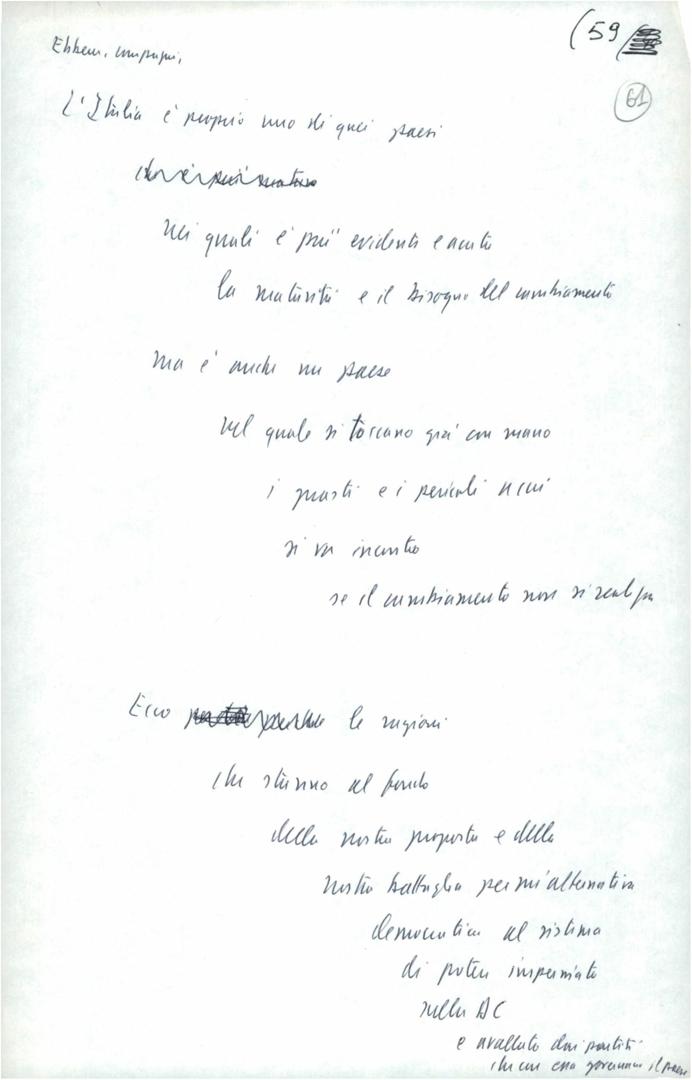 (59
61
Ebbene, compagni,
L'Italia è proprio uno di quei paesi
nei quali è più evidente e acuto
la maturità e il bisogno del cambiamento
ma è anche un paese
nel quale si toccano già con mano
i guasti e i pericoli a cui
si va incontro
se il cambiamento non si realizza
Ecco le ragioni
che stanno al fondo
della nostra proposta e della
nostra battaglia per un'alternativa
democratica al sistema
di potere imperniato
sulla DC
e avallato dai partiti
che con essa governano il paese